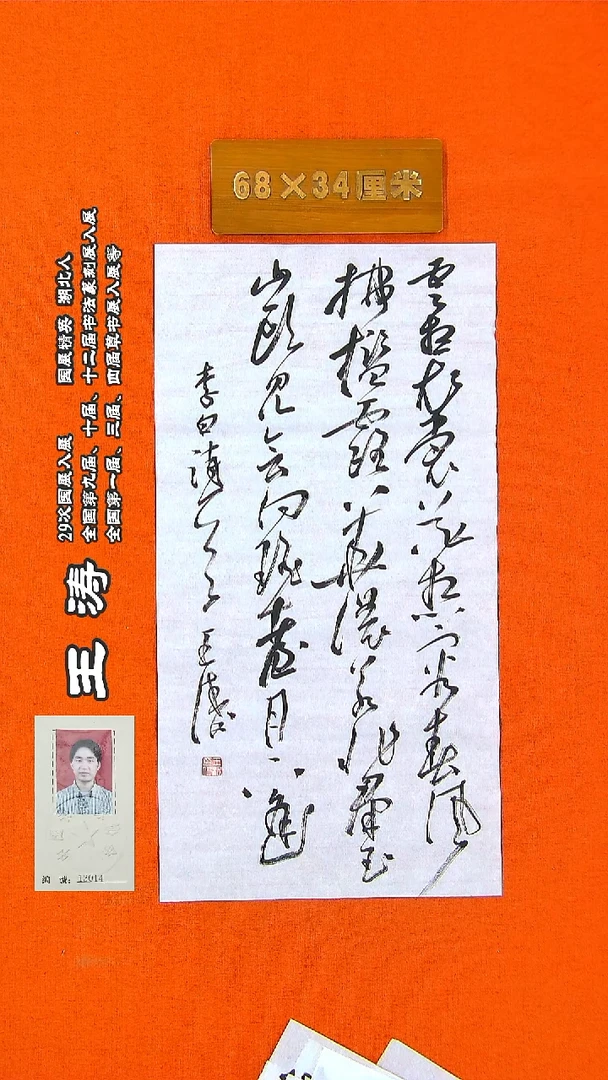 68×34厘米
云想衣裳花想容春风
拂槛露华浓若非群玉
山头见会向瑶台月下逢
李白 王涛
29次国展入展 国展精英 湖北人
全国第九届、十届、十二届书法篆刻展入展
全国第一届、三届、四届草书展入展等
王涛
12014